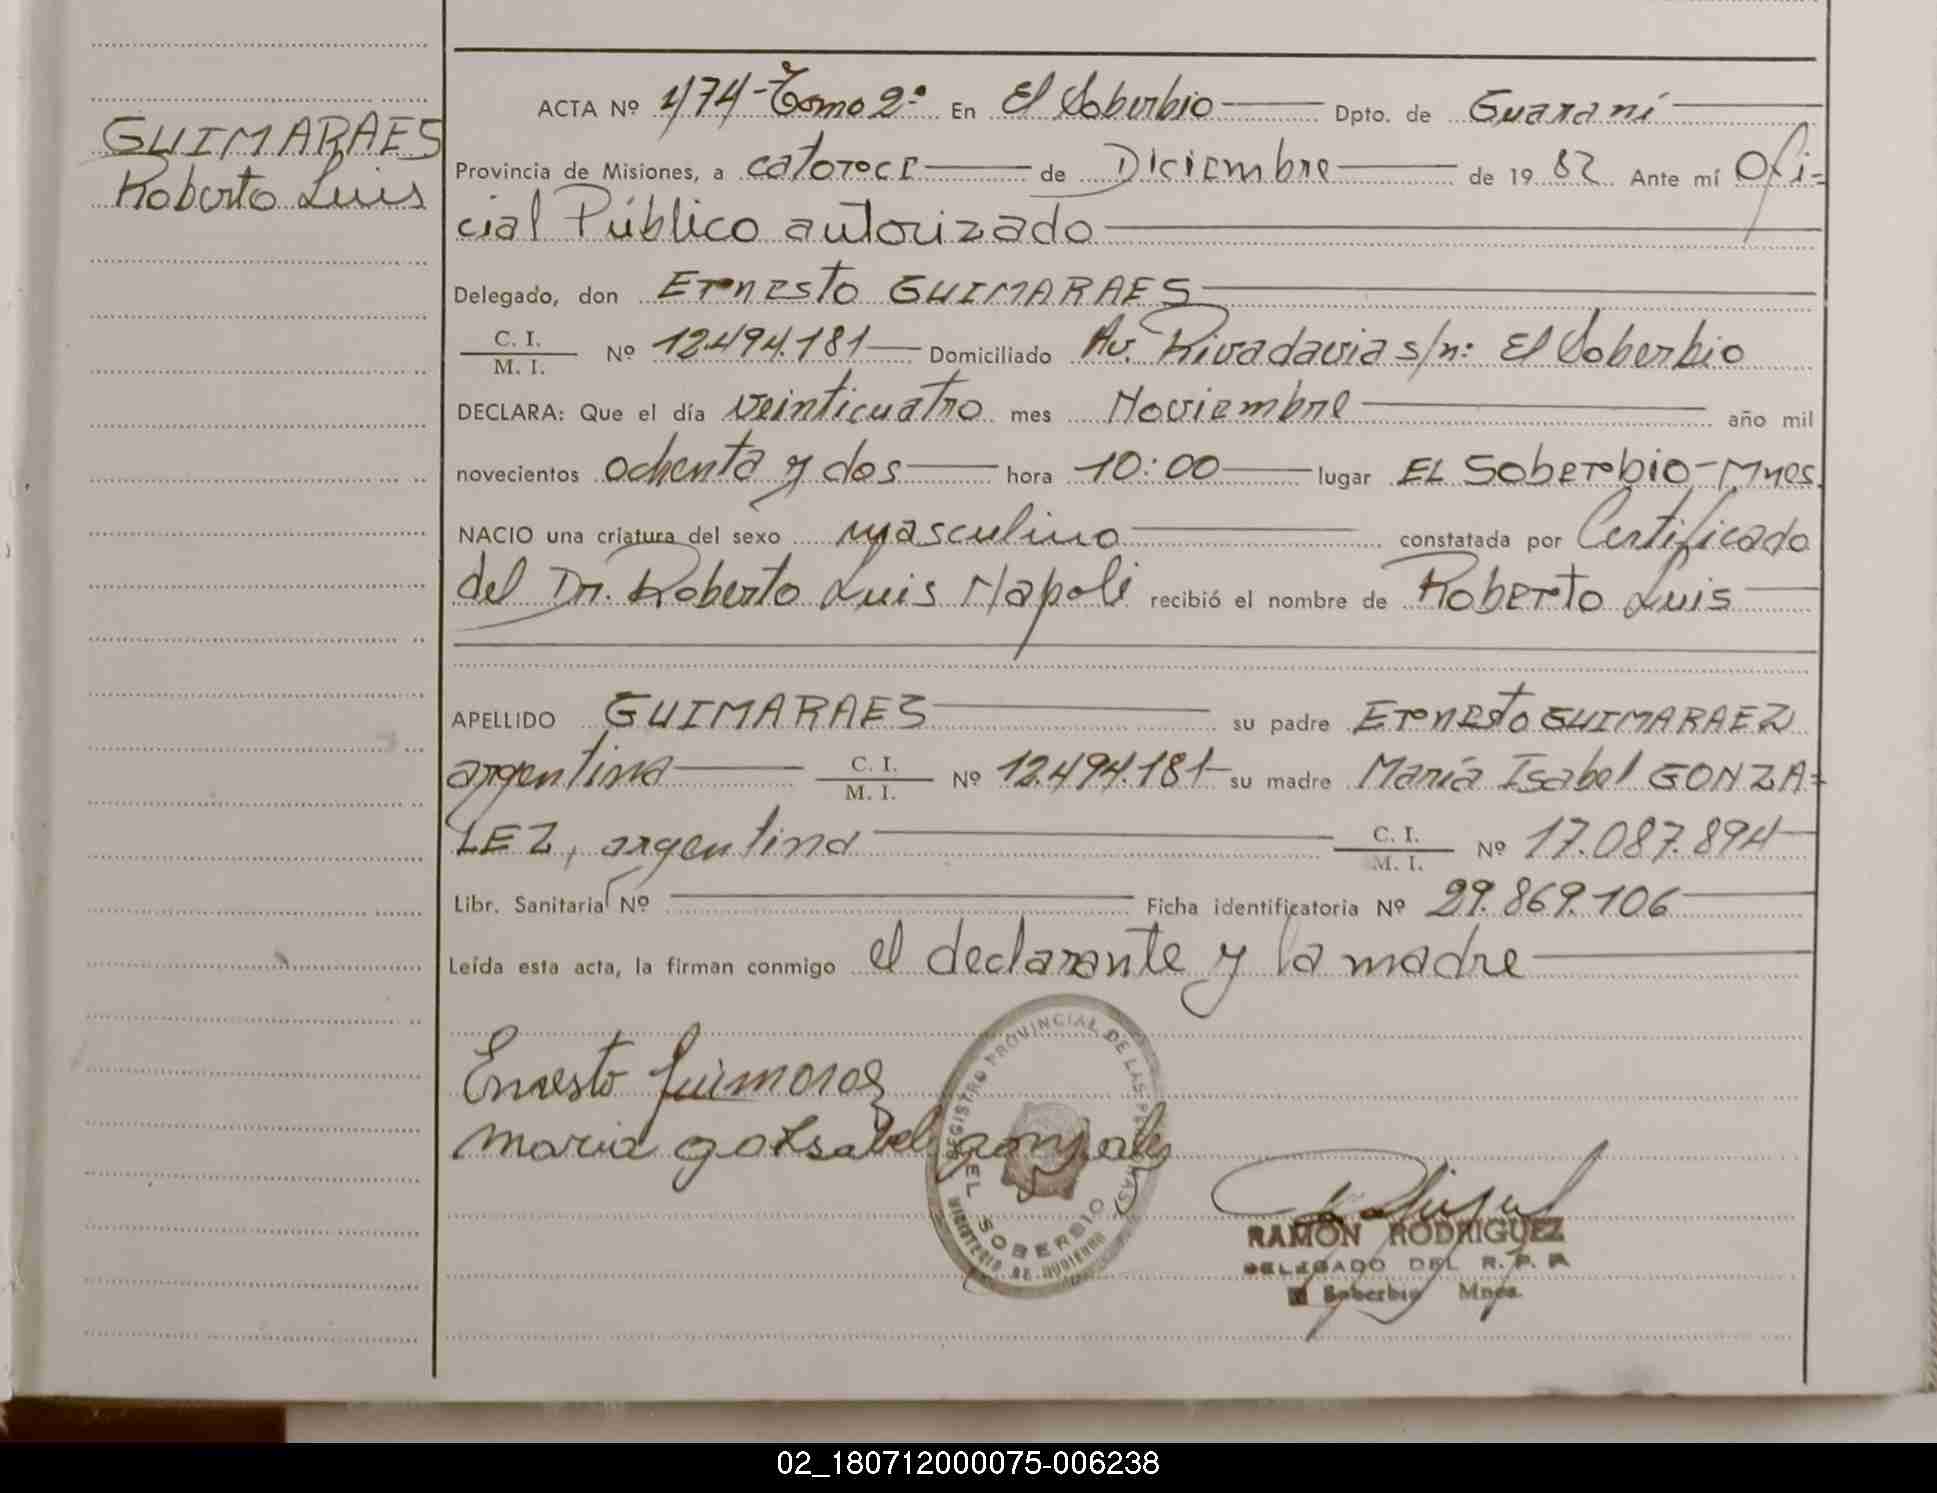 GUIMARAES
Roberto Luis
ACTA Nº 474-Tomo 2º En El Soberbio Dpto. de Guaraní
Provincia de Misiones, a catorce de Diciembre de 1982 Ante mí Ofi-
cial Público autorizado
Delegado, don Ernesto GUIMARAES
C. I.
M. I. Nº 12.494.181 Domiciliado Av. Rivadavia s/n: El Soberbio
DECLARA: Que el día veinticuatro mes Noviembre año mil
novecientos ochenta y dos hora 10:00 lugar EL Soberbio-Mnes.
NACIO una criatura del sexo masculino constatada por Certificado
del Dr. Roberto Luis Napoli recibió el nombre de Roberto Luis
APELLIDO GUIMARAES su padre Ernesto GUIMARAEZ
argentina C. I.
M. I. Nº 12.494.181 su madre María Isabel GONZA-
LEZ, argentina C. I.
M. I. Nº 17.087.894
Libr. Sanitaria Nº Ficha identificatoria Nº 29.869.106
Leída esta acta, la firman conmigo el declarante y la madre
Ernesto
maria
REGISTRO PROVINCIAL DE LAS PERSONAS
EL SOBERBIO
MINISTERIO DE GOBIERNO
RAMÓN RODRIGUEZ
DELEGADO DEL R. P. P.
Soberbio Mnes.
02_180712000075-006238